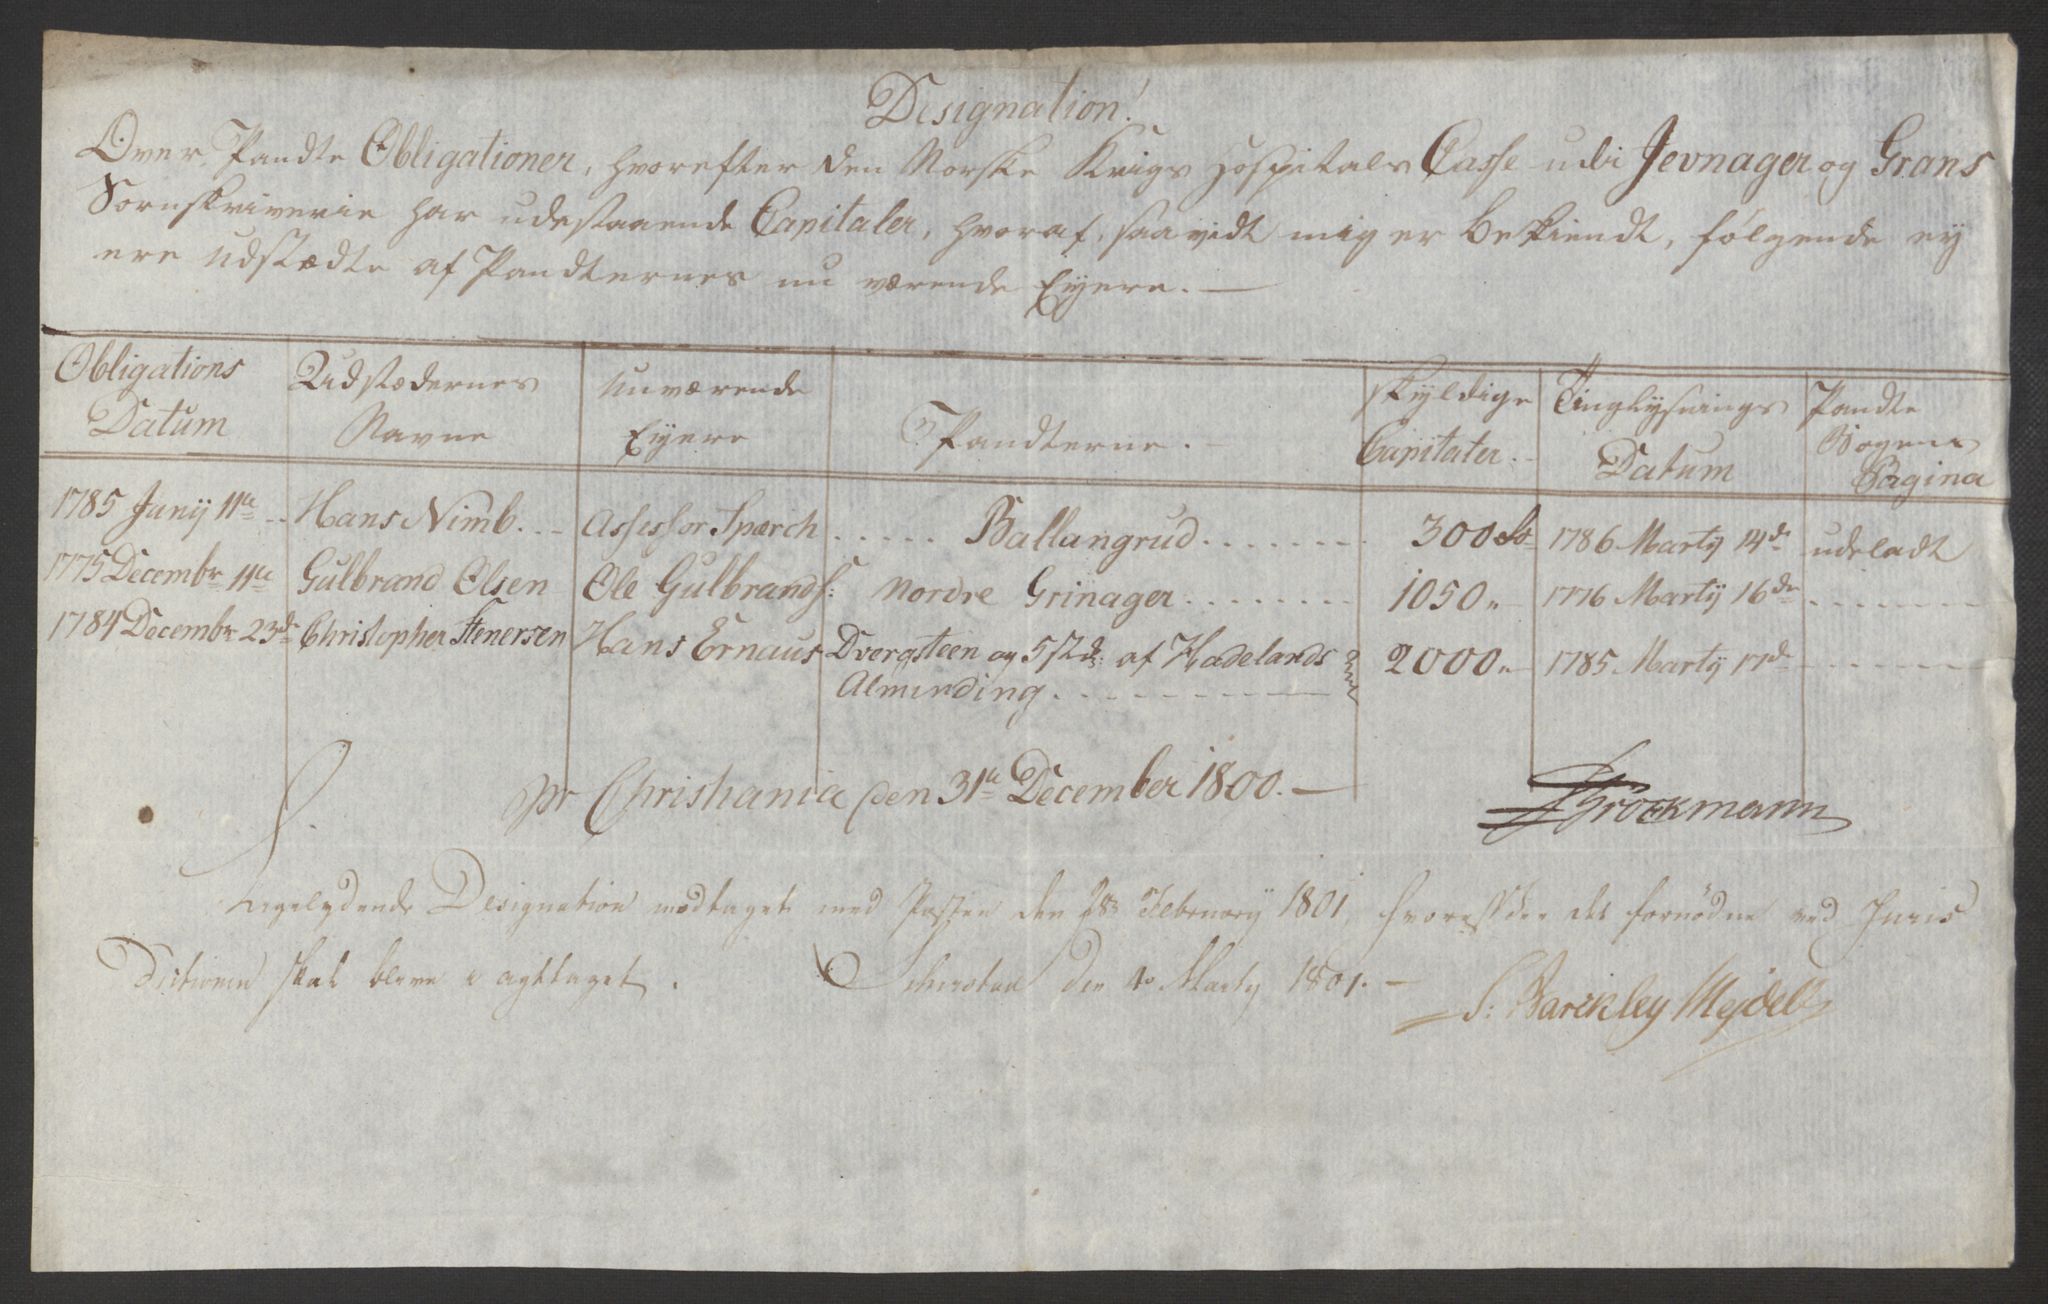 Designation!
Over Pandte Obligationer, hvorefter den Norske Krigs Hospitals Casse udi Jevnager og Grans
Sorenskriverie har udestaaende Capitaler, hvoraf, saavidt mig er bekiendt, følgende ey
ere udstædte af Pandternes nu værende Eyere. —
Obligations Datum | Udstædernes Navne | Nuværende Eyere | Pandterne. | skyldige Capitaler. | Tinglysnings Datum | Pandte Bogens Pagina
1785 Junij 11te | Hans Nimb. | Assessor Spærck | Ballangrud | 300 | 1786 Martij 14de | udeladt
1775 Decembr 11te | Gulbrand Olsen | Ole Gulbrands: | Nordre Grinager | 1050 „ | 1776 Martij 16de
1784 Decembr 23de | Christopher Stenersen | Hans Ernaus | Dvergsteen og af Hadelands | 2000 „ | 1785 Martij 17de
Alminding
pr Christiania den 31te December 1800. —
Brockmann
Ligelydende Designation modtaget med Posten den 28 Februarij 1801, hvorefter det fornødne ved Juris
Dictionen skal blive i agttaget. den Martij 1801. —
S: Barckley Mejdell